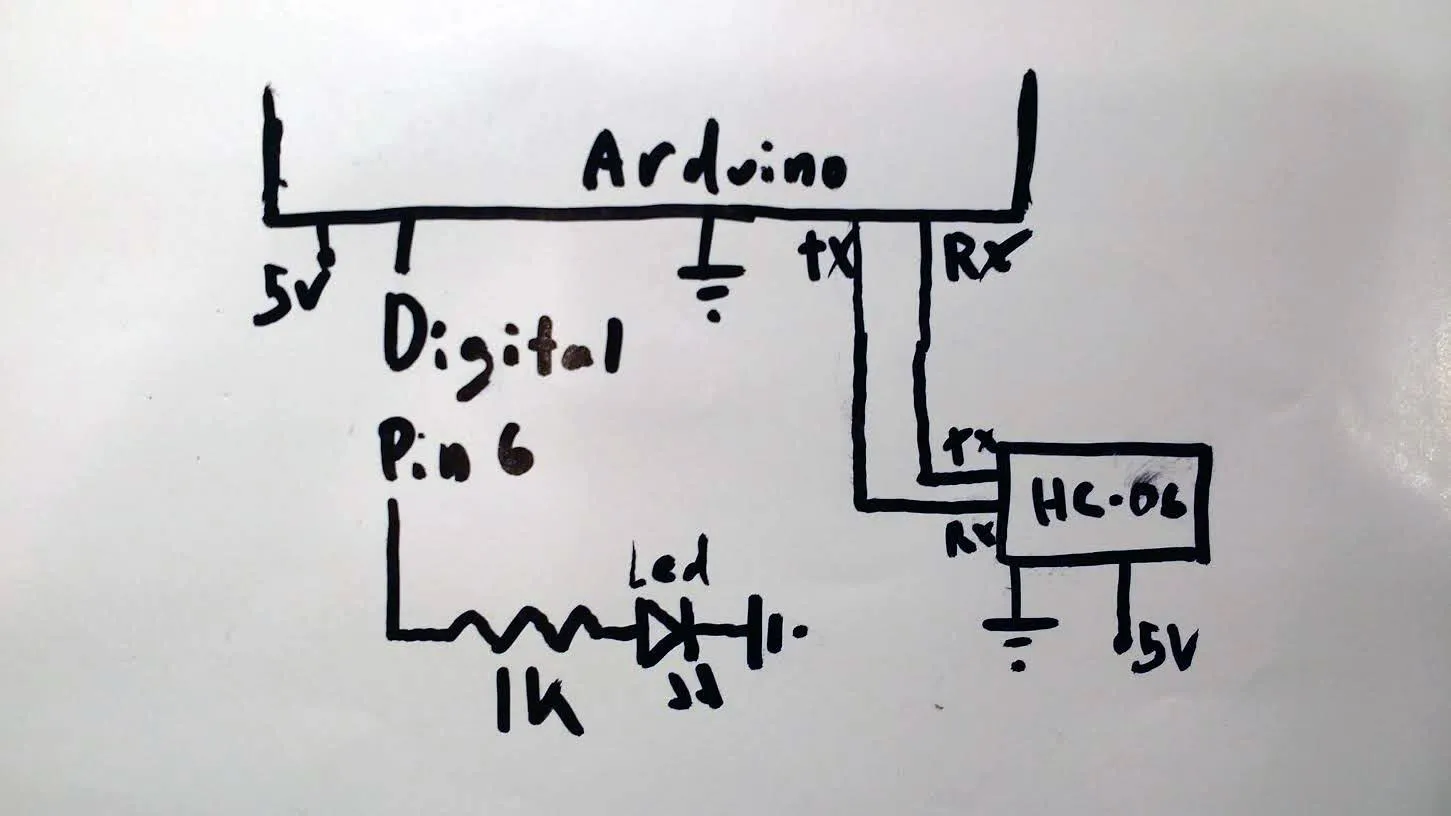 Arduino
5V
tx
Rx
Digital
Pin 6
tx
HC-06
Rx
Led
5V
1K